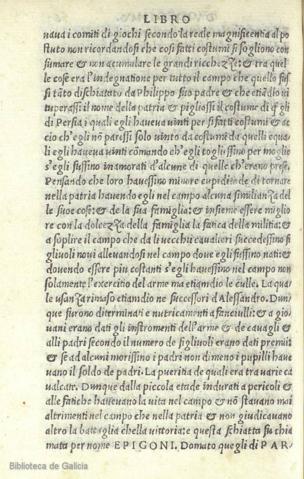 LIBRO
naua i comiti di giochi secondo la reale magnificentia al po
stuto non ricordandosi che cosi fatti costumi si sogliono con
sumare & non acumulare le grandi ricchezze: & tra quel
le cose era l'indegnatione per tutto il campo che quello fus
si tãto dischiatato da Philippo suo padre & che etiãdio ui
tuperassi il nome della patria & pigliassi il costume di q̃gli
di Persia i quali egli haueua uinti per si fatti costumi & a
cio ch'egli nõ paressi solo uinto da costumi da quelli equa
li egli haueua uinti cõmando ch'egli togliessino per moglie
s'egli fussino inamorati d'alcune di quelle ch'erano prese.
Pensando che loro hauessino minore cupidita de di tornare
nella patria hauendo egli nel campo alcuna similianza del
le sue cose: & de la sua famiglia: & insieme essere miglio
re con la dolcezza della famiglia la fatica della militia: &
a soplire il campo che da li uecchi caualieri succedessino fi
gliuoli noui alleuandosi nel campo doue egli fussino nati: &
douendo essere piu costanti s'egli hauessino nel campo non
solamente l'exercitio del arme ma etiamdio le culle. La qua
le usanza rimase etiamdio ne successori d'Alessandro. Dun
que furono diterminati e nutricamenti a fanciulli: & a gio
uani erano dati gli instromenti dell'arme & de cauagli &
alli padri secondo il numero de figliuoli erano dati premii
& se ad alcuni morissino i padri non dimeno i pupilli haue
uano il soldo de padri. La pueritia de quali era tra uarie ca
ualcate. Dunque dalla piccola etade indurati a pericoli &
alle fatiche haueuano la uita nel campo & nõ stauano mai
altrimenti nel campo che nella patria & non giudicauano
altro la battaglia chella uittoria: & questa schiatta fu chia
mata per nome EPIGONI. Domato quegli di PAR/
Biblioteca de Galicia